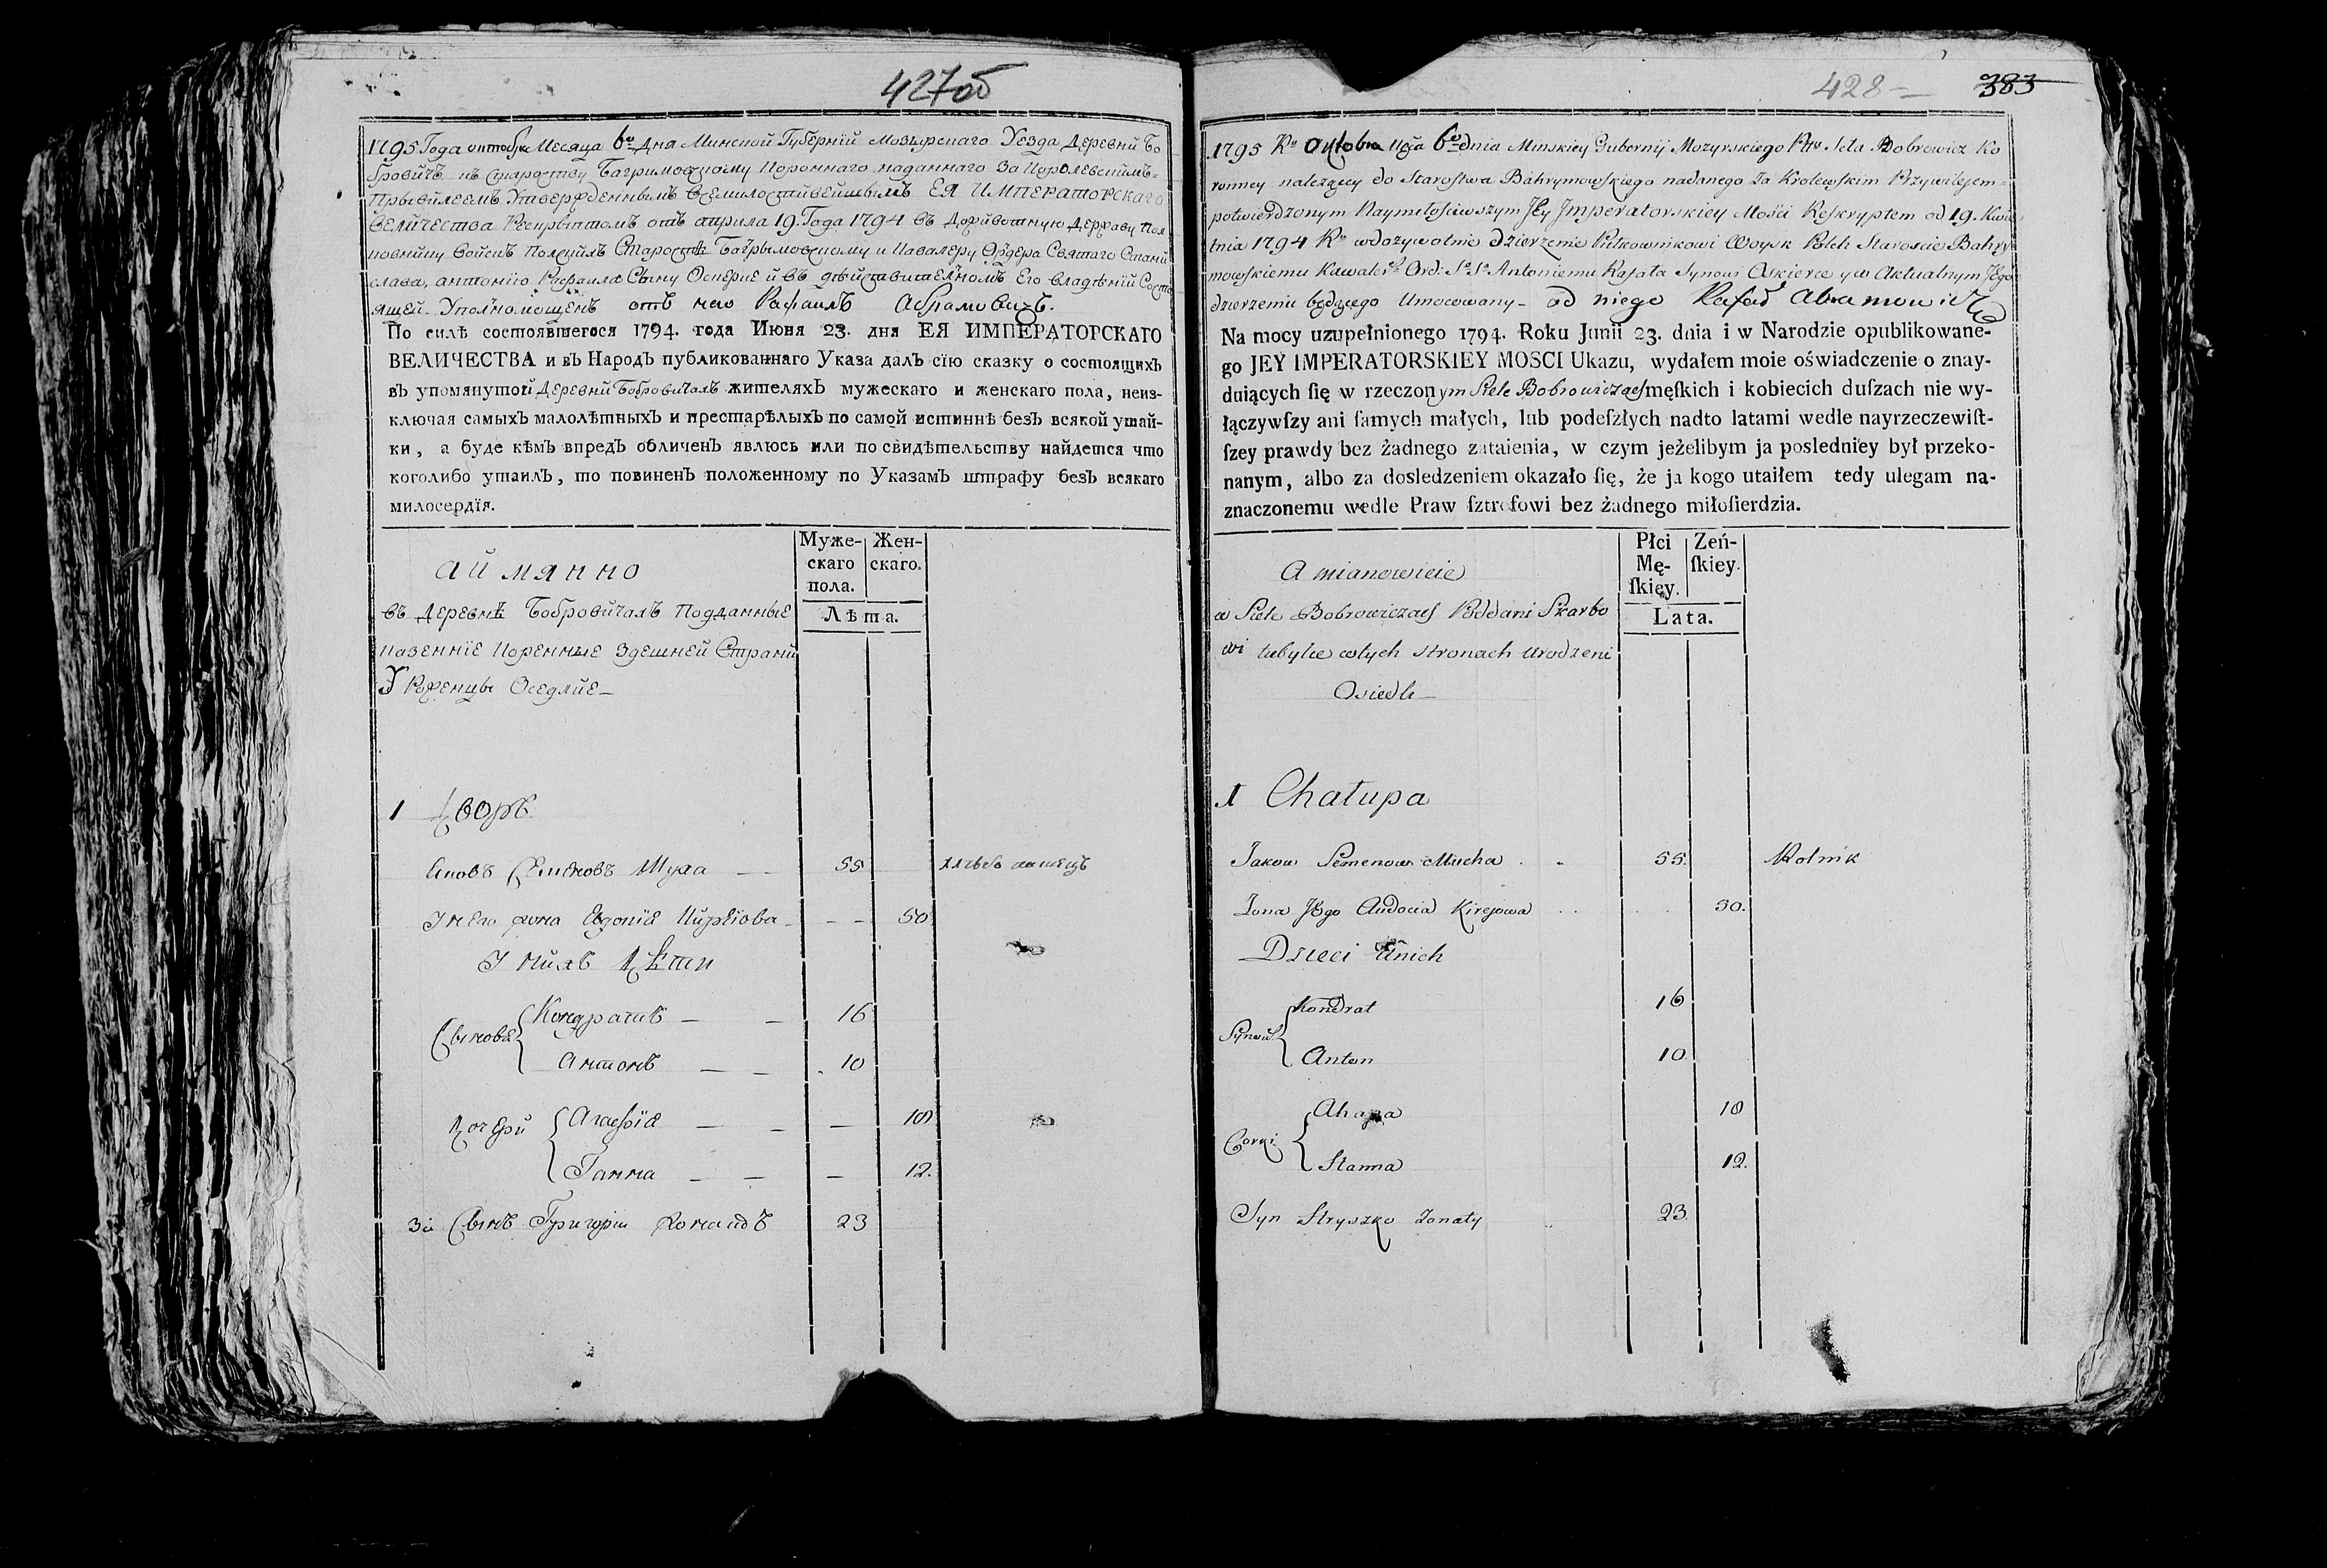 427об
1795 Года октобря Месяца 6го Дня Минской Губернїй Мозырскаго Уезда Деревнй Бо
бровичъ къ староству Багримовскому Короннаго наданнаго За Королевскимъ=
Прывйлеемъ Утвержденнымъ Всемилостивейшымъ ЕЯ ИМПЕРАТОРСКАГО
ВЕЛИЧЕСТВА Рескрыптомъ отъ априла 19. Года 1794 въ Дожйвотную Державу Пол
ковнйку войскъ Полскйхъ Старостѣ Багрымовскому и Кавалеру Ордера Святаго Станй
слава, антонїю Рафаила Сыну Оскерке й въ дѣйствителномъ Его владѣнїй Состо
ящей. Уполномощенъ отъ него Рафаилъ Абрамовичъ.
По силѣ состоявшегося 1794. года Июня 23. дня ЕЯ ИМПЕРАТОРСКАГО
ВЕЛИЧЕСТВА и въ Народъ публикованнаго Указа далъ сїю сказку о состоящихъ
въ упомянутой Деревнй Бобровичахъ жителяхъ мужескаго и женскаго пола, неиз-
ключая самыхъ малолѣтныхъ и престарѣлыхъ по самой истиннѣ безъ всякой утай-
ки, а буде кѣмъ впредъ обличенъ явлюсь или по свидѣтельству найдется что
коголибо утаилъ, то повиненъ положенному по Указамъ штрафу безъ всякаго
милосердїя.
Муже-скаго пола. Жен-скаго.
Лѣта.
а й мянно
въ Деревнѣ Бобровичахъ Подданные
казеннїе Коренные Здешней Страны
У Роженцы Оседлйе
1 Дворъ.
Яковъ Семеновъ Муха 55 хлѣбопашецъ
У него жона Евдокїя Кирѣіова 50
У нйхъ Дѣти
Сыновя Кондратъ 16
Антонъ 10
Дочерй Агафїя 10
Ганна 12.
3й Сынъ Григорїи жонатъ 23
428 383
1795 Ku Oktobra Mca 6go dnia Minskiey Gubernij Mozyrskiego Pttu Sela Bobrowicz Ko
ronney nalezącey do Starostwa Bahrymowskiego nadanego Za Krolewskim Przywilejem=
potwierdzonym Naymiłościwszym JEy Jmperatorskiey Mości Reskryptem od 19. Kwie
tnia 1794 Ru w dozywotnie dzierzenie Pułkownikowi Woysk Polch Staroscie Bahry
mowskiemu Kawalerowi Ord: S. S. Antoniemu Rafała Synowi Oskierce y w Aktualnym Jego
dzierzeniu będącego Umocowany - od niego Rafał Abramowicz
Na mocy uzupełnionego 1794. Roku Junii 23. dnia i w Narodzie opublikowane-
go JEY IMPERATORSKIEY MOSCI Ukazu, wydałem moie oświadczenie o znay-
duiących ſię w rzeczonym Siele Bobrowiczach męſkich i kobiecich duſzach nie wy-
łączywſzy ani ſamych małych, lub podeſzłych nadto latami wedle nayrzeczewiſt-
ſzey prawdy bez żadnego zataienia, w czym jeżelibym ja posledniey był przeko-
nanym, albo za dosledzeniem okazało ſię, że ja kogo utaiłem tedy ulegam na-
znaczonemu wedle Praw ſztrofowi bez żadnego miłoſierdzia.
Płci Mę-ſkiey. Zeń-ſkiey.
Lata.
A mianowicie
w Siele Bobrowiczach Poddani Skarbo
wi tubylce w tych stronach urodzeni
Osiedli
1 Chałupa
Jakow Semenow Mucha 55. Rolnik
Zona JEgo Audocia Kirejowa 50.
Dzieci u nich
Synowie Kondrat 16
Anton 10
Corki Ahapa 10
Hanna 12.
Syn Hryszko Zonaty 23.